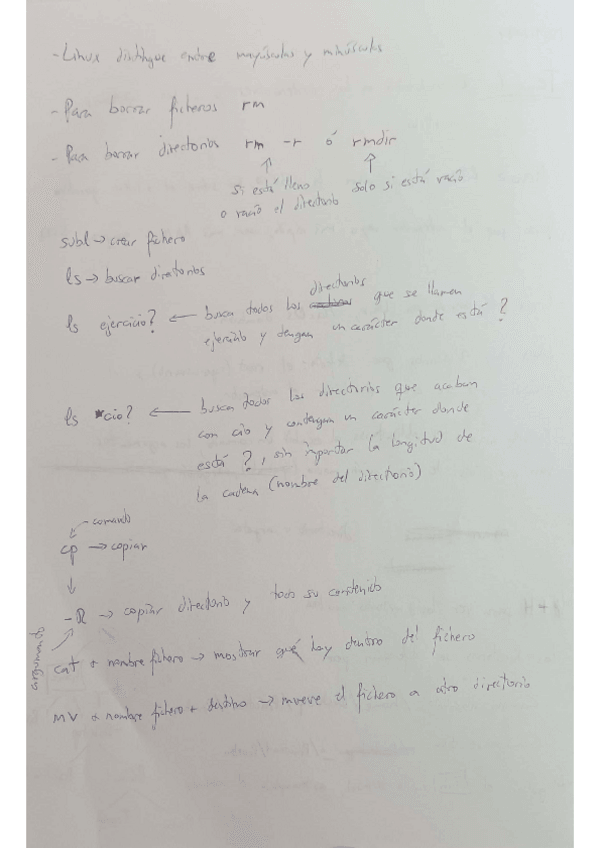 - Linux distingue entre mayúsculas y minúsculas
- Para borrar ficheros rm
- Para borrar directorios rm -r ó rmdir
si está lleno
o vacío el directorio
solo si está vacío
subl → crear fichero
ls → buscar diretorios
ls ejercicio? ← busca todos los directorios que se llamen
ejercicio y tengan un carácter donde está ?
ls *cio? ← busca todos los directorios que acaban
con cio y contengan un carácter donde
está ?, sin importar la longitud de
la cadena (nombre del directorio)
comando
cp → copiar
-R → copiar directorio y todo su contenido
argumento
cat + nombre fichero → mostrar qué hay dentro del fichero
mv + nombre fichero + destino → mueve el fichero a otro directorio